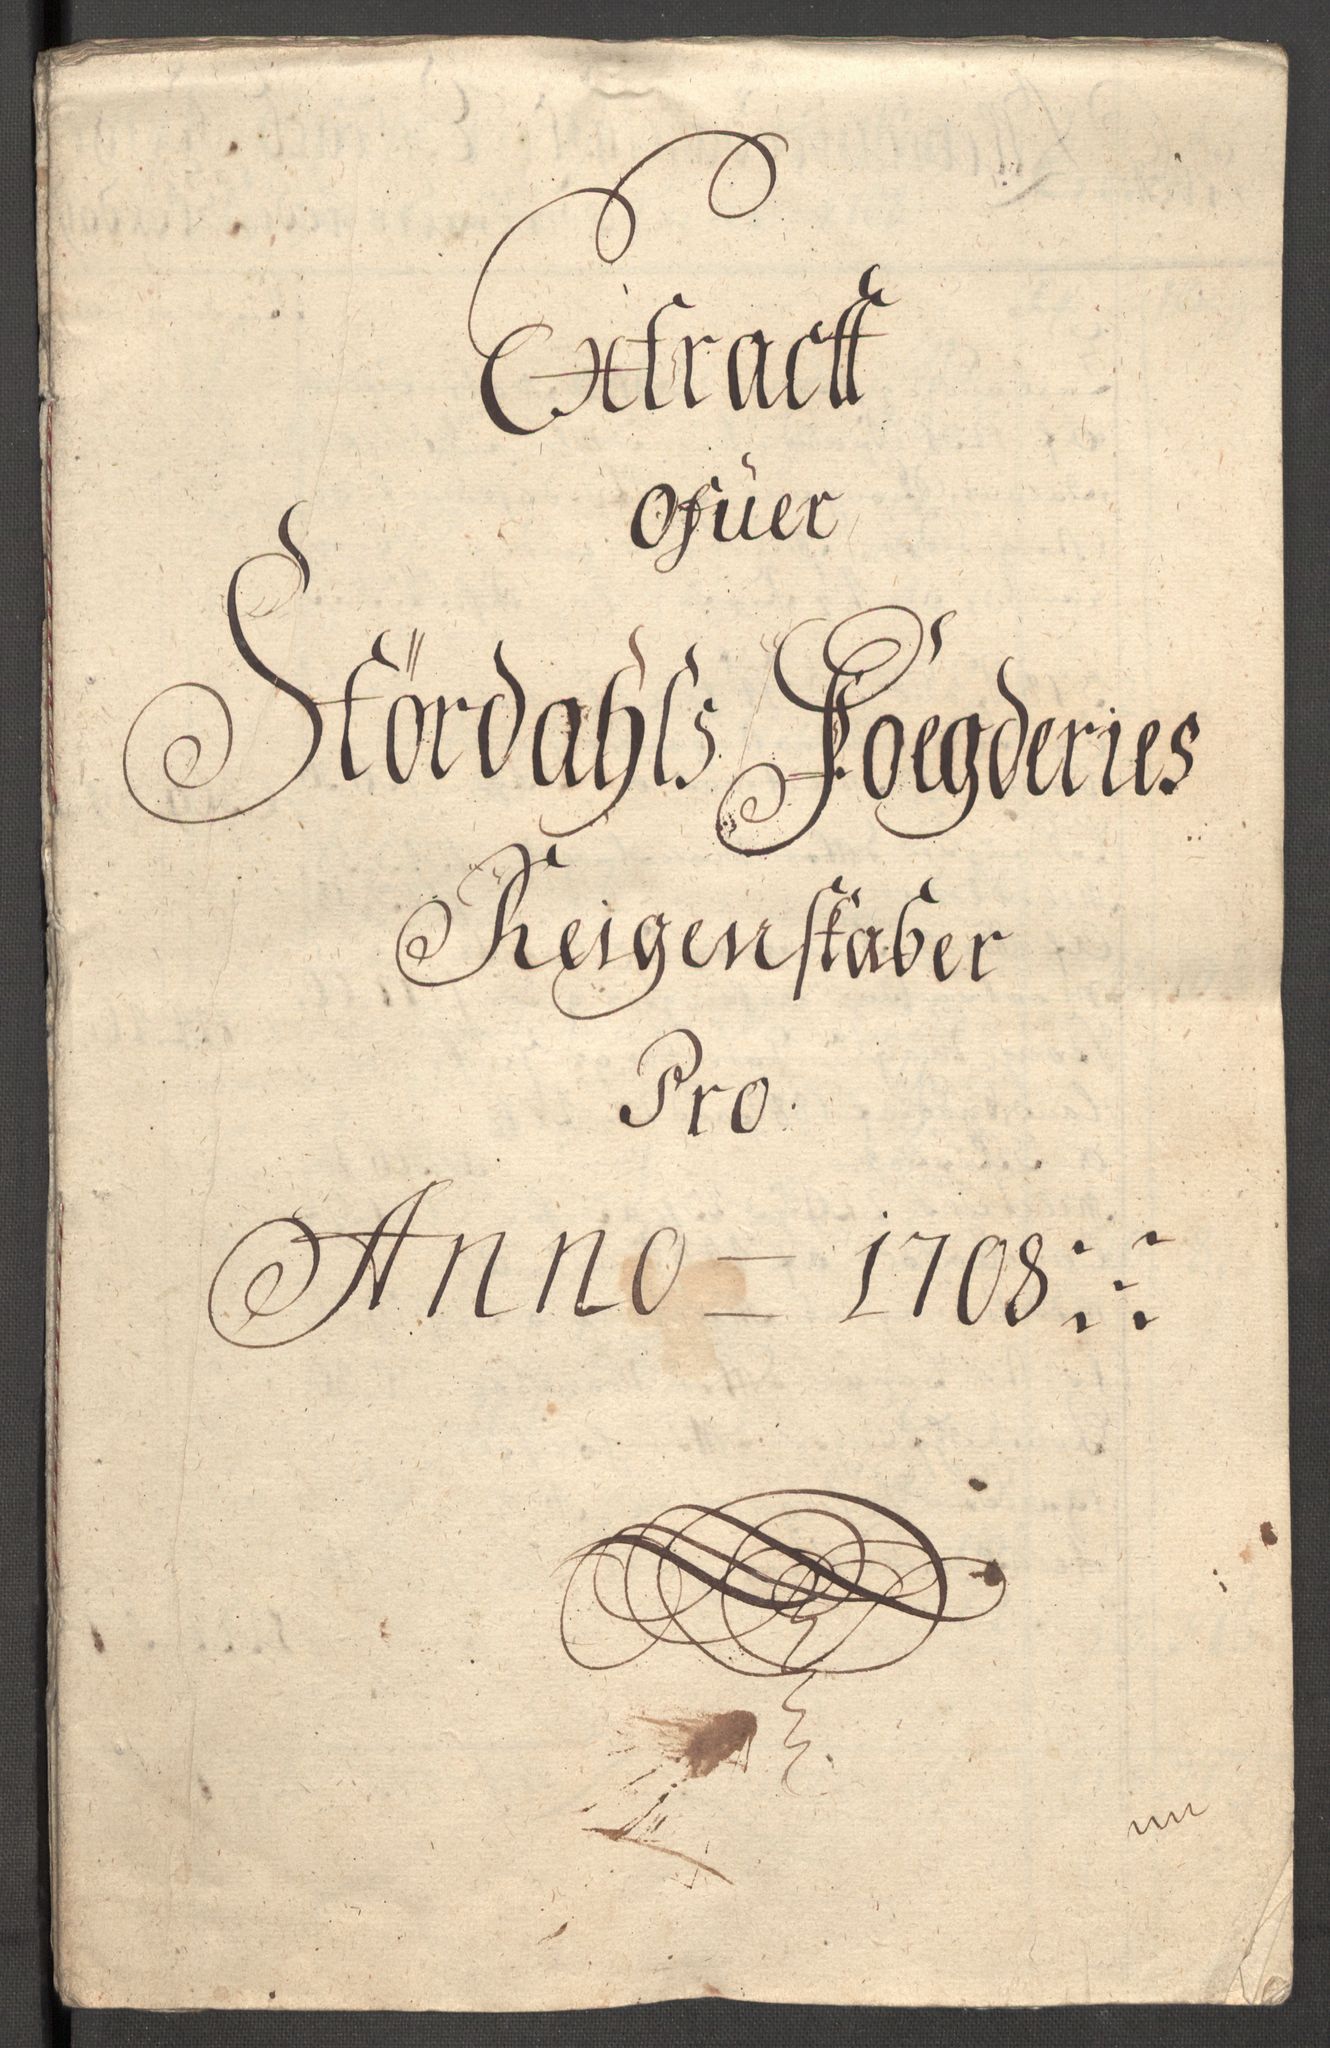 Extractt
ofuer
Stördahls Foegderies
Reigenskaber
Pro
Anno = 1708